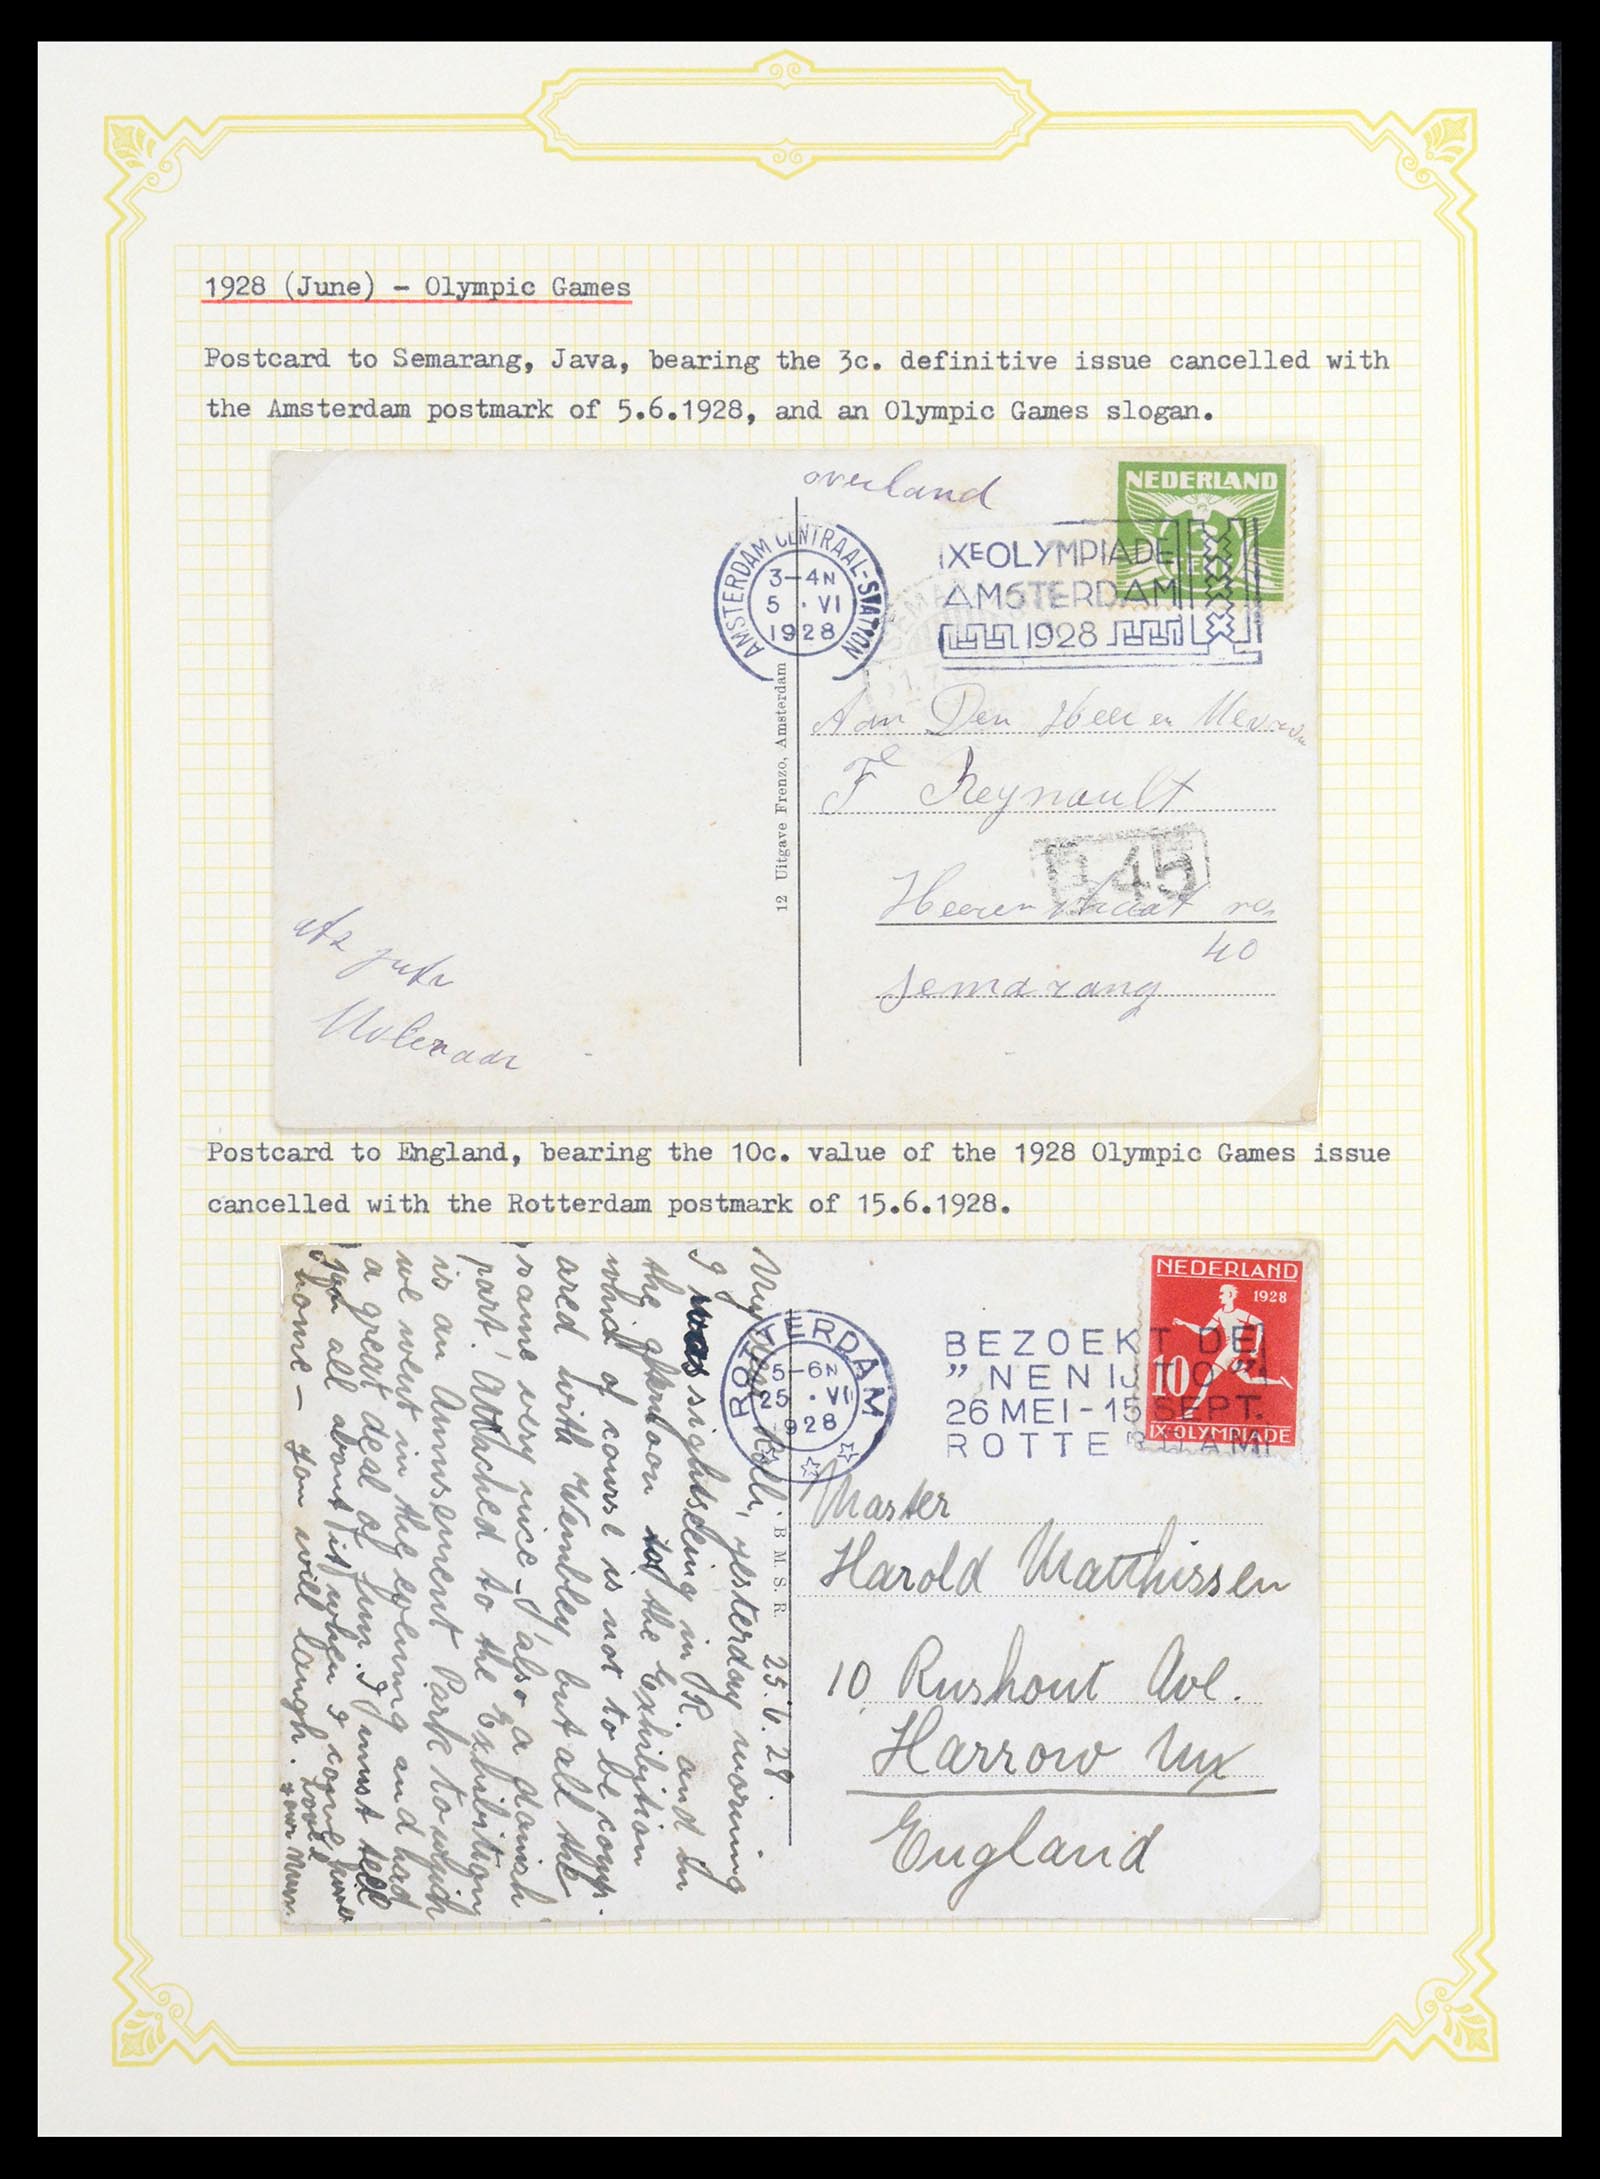 1928 (June) - Olympic Games
Postcard to Semarang, Java, bearing the 3c. definitive issue cancelled with
the Amsterdam postmark of 5.6.1928, and an Olympic Games slogan.
overland
NEDERLAND
AMSTERDAM CENTRAAL-STATION
3-4N
5 · VI
1928
IXE OLYMPIADE
AMSTERDAM
1928
Aan Den Heer en Mevrouw
Reynault
145
Heerenstraat no
40
Semarang
12 Uitgave Frenzo, Amsterdam
Molenaar
Postcard to England, bearing the 10c. value of the 1928 Olympic Games issue
cancelled with the Rotterdam postmark of 15.6.1928.
NEDERLAND
1928
10
IX·OLYMPIADE
ROTTERDAM
5-6N
25 · VI
1928
BEZOEKT DE
"NENIJTO"
26 MEI-15 SEPT.
ROTTERDAM
Master
Harold Matthissen
10 Rushout Ave.
Harrow Mx
England
B M S. R
25.6.28.
My dear yesterday morning
I was sightseeing in R. and in
the afternoon to the Exhibition
which of course is not to be comp.
ared with Wembley but all the
same very nice - also a danish
part! Attached to the Exhibition
is an Amusement Park to which
we went in the evening and had
a great deal of fun. I must tell
you all about it when I come
home - you will laugh.
Love
your Mum